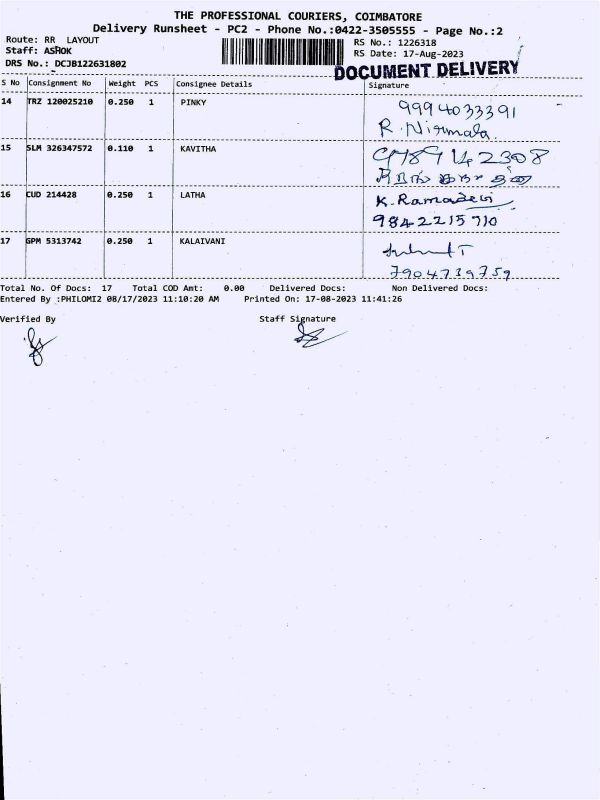 THE PROFESSIONAL COURIERS, COIMBATORE
Delivery Runsheet - PC2 - Phone No.:0422-3505555 - Page No.:2
Route: RR LAYOUT
RS No.: 1226318
Staff: ASHOK
RS Date: 17-Aug-2023
DRS No.: DCJB122631802
DOCUMENT DELIVERY
S No Consignment No Weight PCS Consignee Details Signature
14 TRZ 120025210 0.250 1 PINKY 9994033391
R. Nirmala.
15 SLM 326347572 0.110 1 KAVITHA
16 CUD 214428 0.250 1 LATHA K. Ramadevi
9842215710
17 GPM 5313742 0.250 1 KALAIVANI
7904719759
Total No. Of Docs: 17 Total COD Amt: 0.00 Delivered Docs: Non Delivered Docs:
Entered By :PHILOMI2 08/17/2023 11:10:20 AM Printed On: 17-08-2023 11:41:26
Verified By Staff Signature